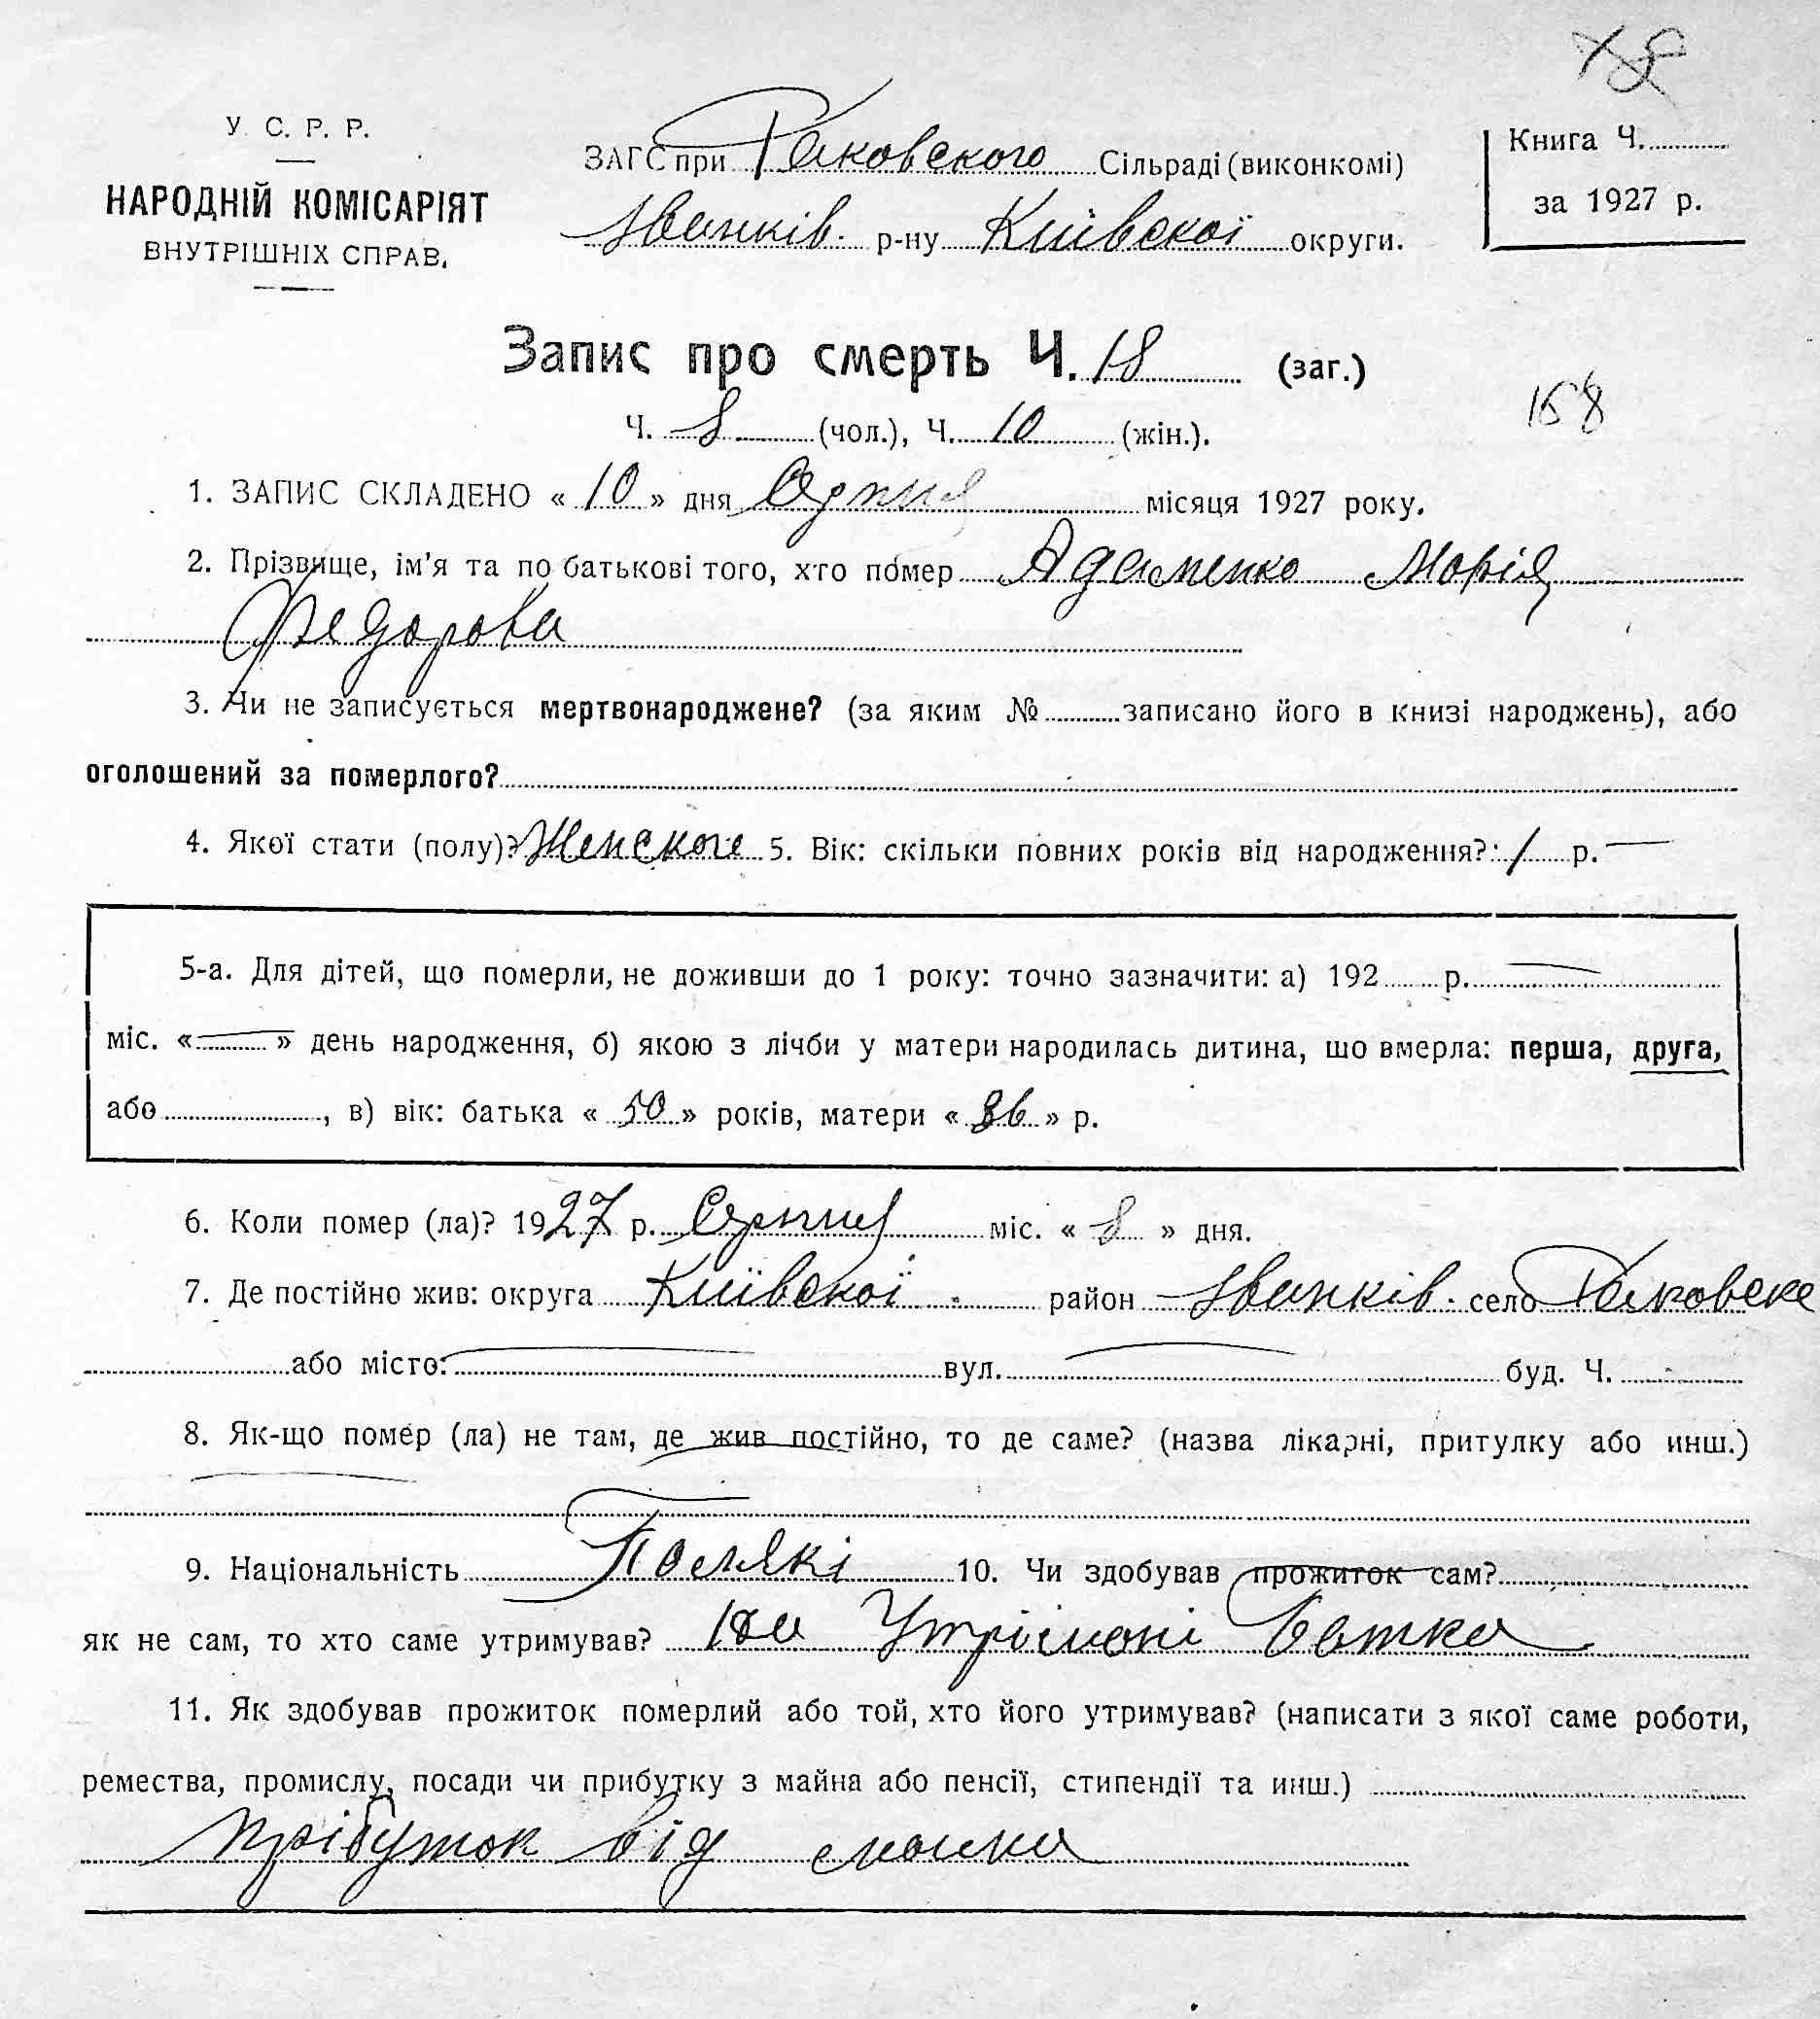 У. С. Р. Р.
НАРОДНІЙ КОМІСАРІЯТ
ВНУТРІШНІХ СПРАВ.
ЗАГС при Раковского Сільраді (виконкомі)
Іванків. р-ну Київскої округи.
Книга Ч.
за 1927 р.
Запис про смерть Ч. 18 (заг.)
168
Ч. 8 (чол.), Ч. 10 (жін.).
1. ЗАПИС СКЛАДЕНО « 10 » дня Серпня місяця 1927 року.
2. Прізвище, ім’я та по батькові того, хто помер Адаменко Марія
Федорова
3. Чи не записується мертвонароджене? (за яким № записано його в книзі народжень), або
оголошений за померлого?
4. Якої стати (полу)? Женского 5. Вік: скільки повних років від народження?: 1 р. —
5-а. Для дітей, що померли, не доживши до 1 року: точно зазначити: а) 192 р. —
міс. « — » день народження, б) якою з лічби у матери народилась дитина, шо вмерла: перша, друга,
або , в) вік: батька « 50 » років, матери « 36 » р.
6. Коли помер (ла)? 1927 р. Серпня міс. « 8 » дня.
7. Де постійно жив: округа Київскої район Іванків. село Раковске
або місто: — вул. — буд. Ч.
8. Як-що помер (ла) не там, де жив постійно, то де саме? (назва лікарні, притулку або инш.)
9. Національність Полякі 10. Чи здобував прожиток сам?
як не сам, то хто саме утримував? На Утрімані Батка
11. Як здобував прожиток померлий або той, хто його утримував? (написати з якої саме роботи,
ремества, промислу, посади чи прибутку з майна або пенсії, стипендії та инш.)
Прібуток від